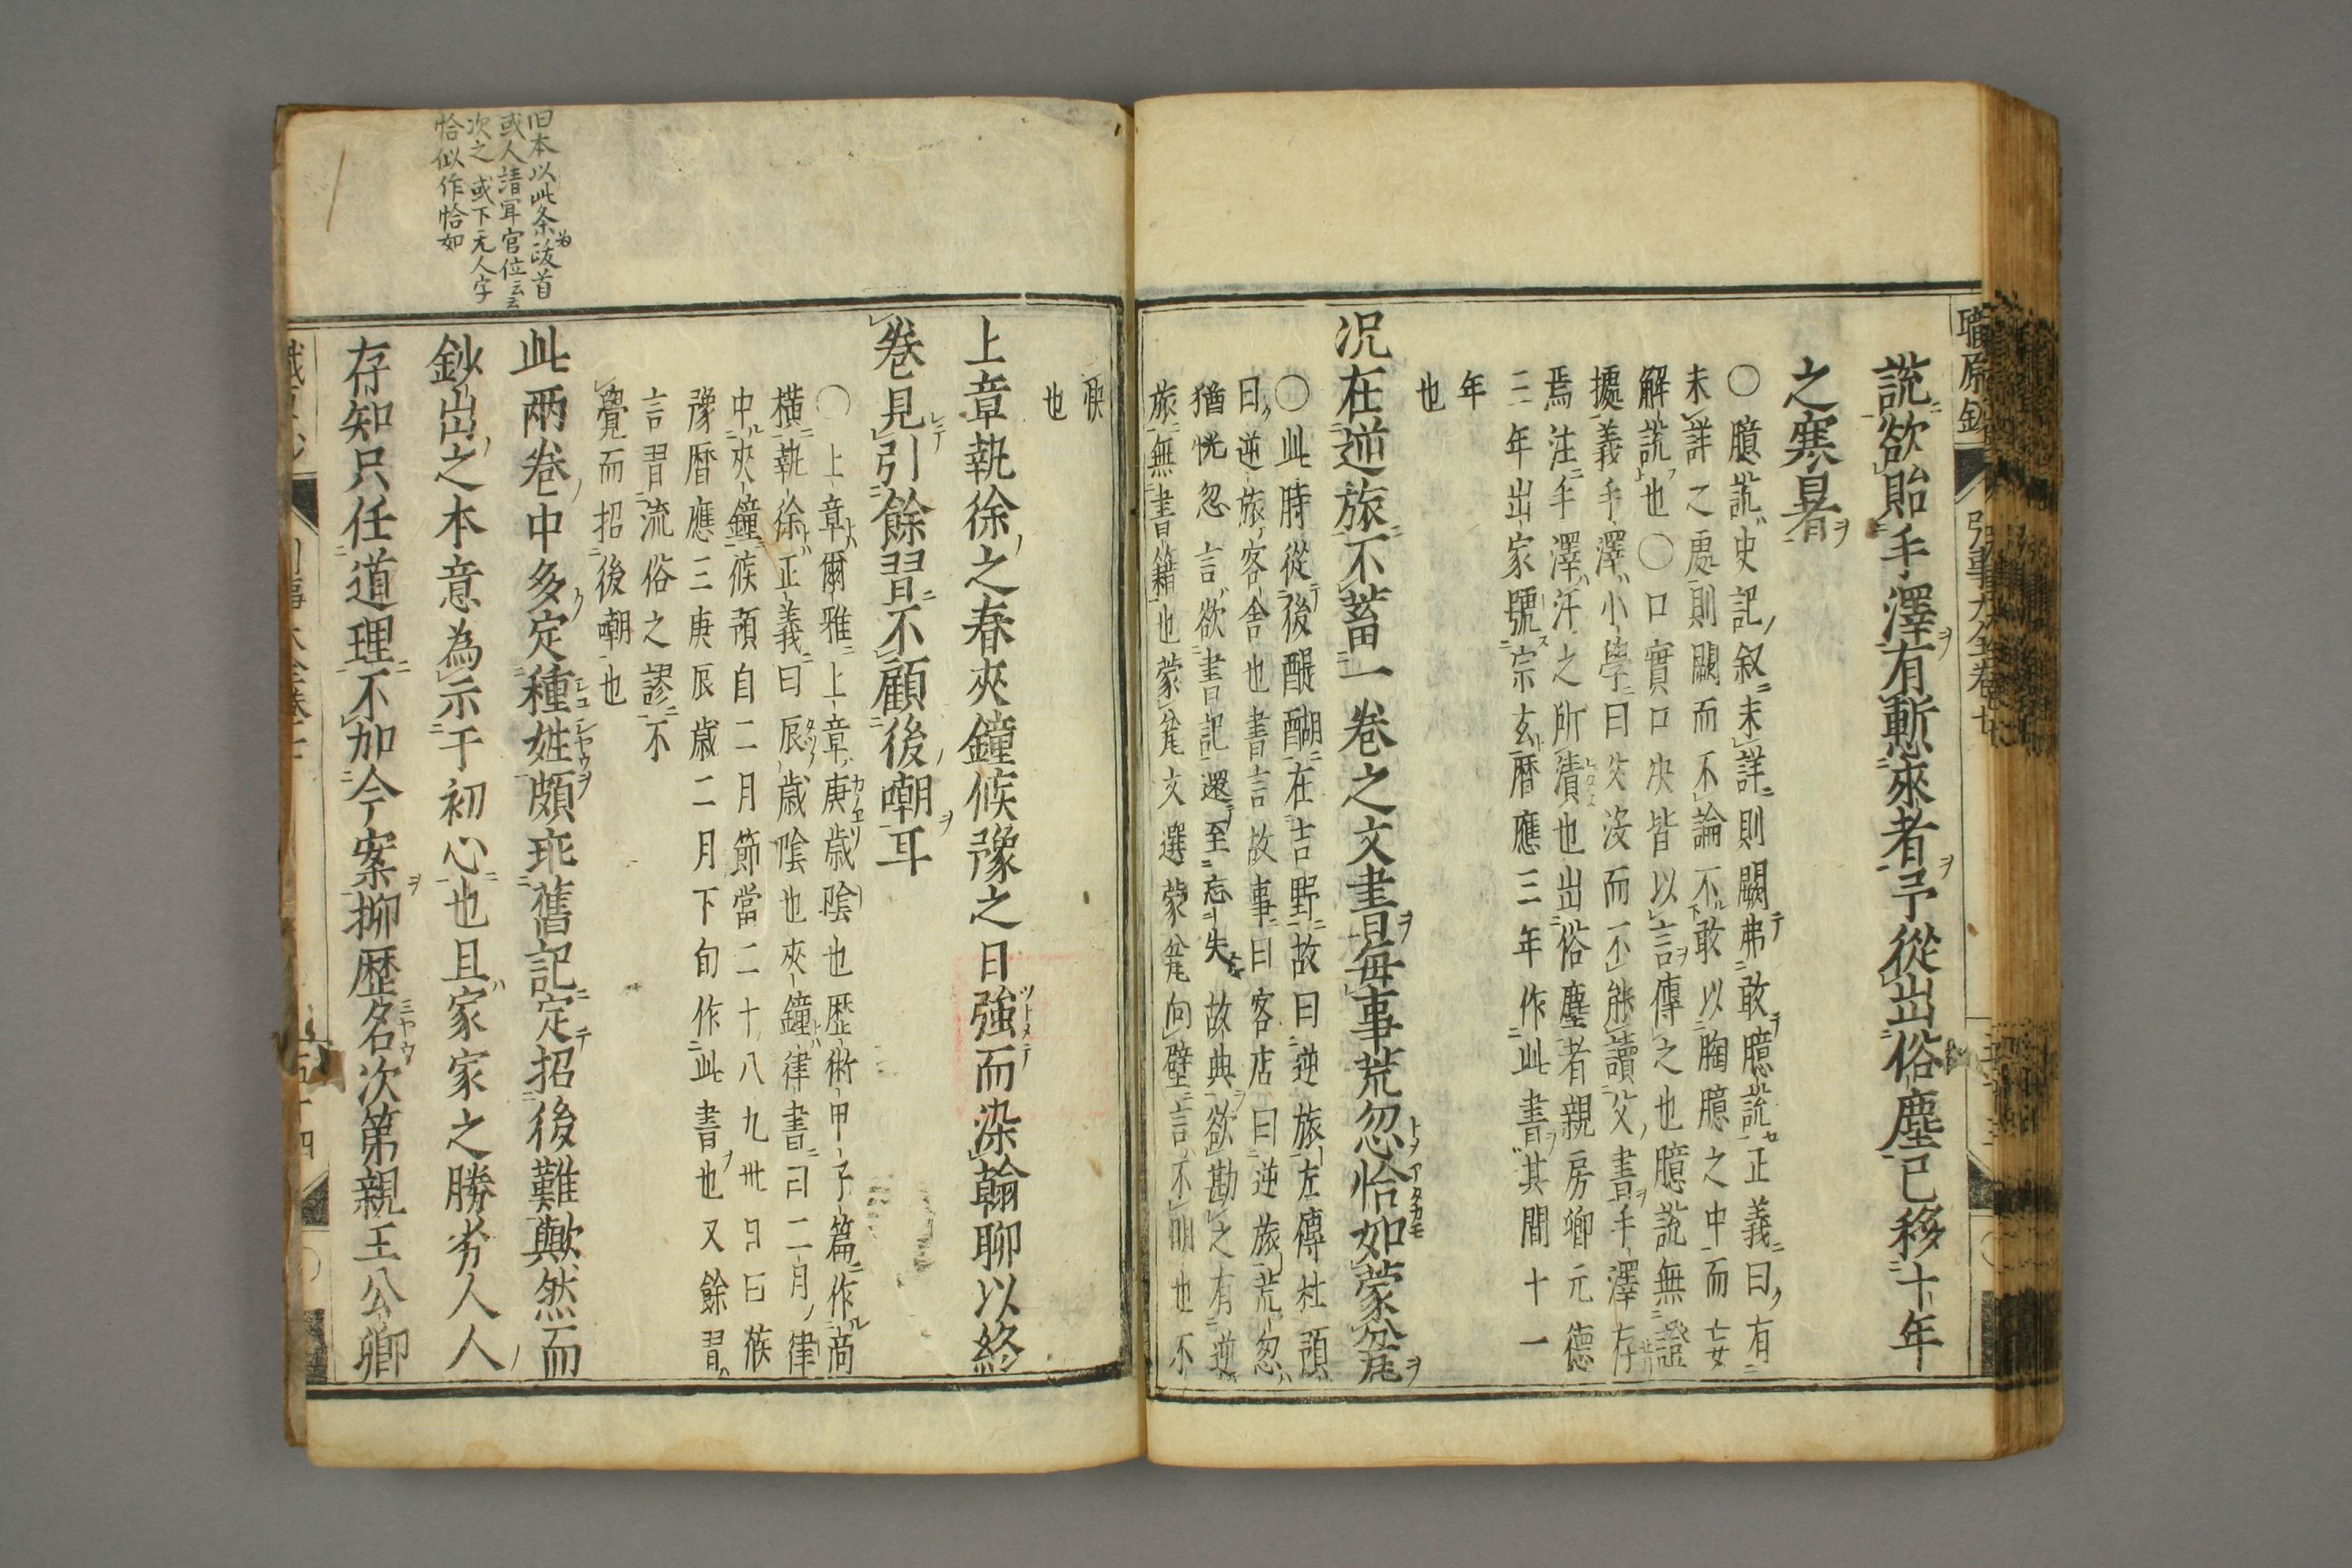 職原鈔 引事大全卷七
説欲貽手澤有慙來者予從出俗塵已移十年
之寒暑
〇臆説史記叙未詳則闕弗敢臆説正義曰有
未詳之處則闕而不論不敢以胸臆之中而妄
解説也〇口實口决皆以言傳之也臆説無證
據義手澤小學曰父没而不能讀父書手澤存
焉注手澤汗之所漬也出俗塵者親房卿元德
二年出家號宗玄曆應三年作此書其間十一
年
也
况在逆旅不蓄一卷之文書毎事荒忽恰如蒙瓫
〇此時從後醍醐在吉野故曰逆旅左傳杜預
曰逆旅客舍也書言故事曰客店曰逆旅荒忽
猶恍忽言欲書記還至忘失故典欲勘之有逆
旅無書籍也蒙瓫文選蒙瓫向壁言不明也不
快
也
上章執徐之春夾鐘候豫之日強而染翰聊以終
卷見引餘習不顧後嘲耳
〇上章爾雅上章庚歳陰也歴術甲子篇作商
横執徐正義曰辰歳陰也夾鐘律書曰二月律
中夾鐘候預自二月節當二十八九卅日曰候
豫暦應三庚辰歳二月下旬作此書也又餘習
言習流俗之謬不
覺而招後嘲也
此兩卷中多定種姓頗乖舊記定招後難歟然而
鈔出之本意為示于初心也且家家之勝劣人人
存知只任道理不加今案抑歴名次第親王公卿
旧本以此条為跋首
或人請冩官位云云
次之 或下无人字
恰似作恰如